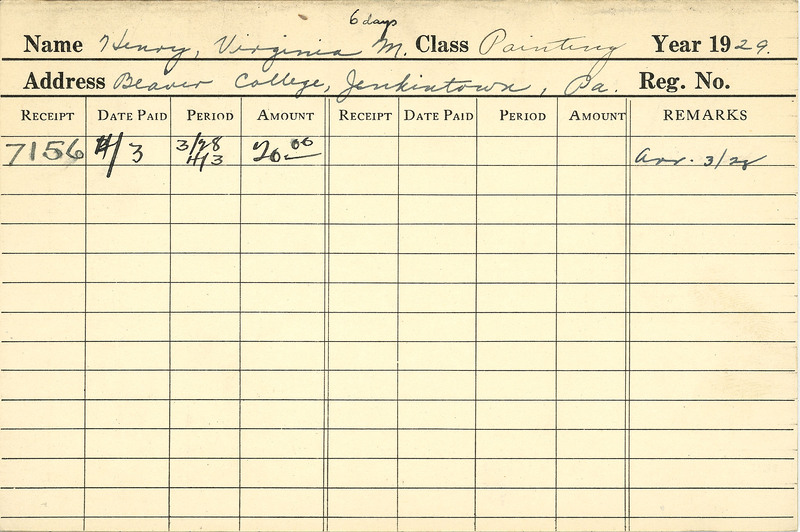 6 days
Name Henry, Virginia M. Class Painting Year 1929.
Address Beaver College, Jenkintown, Pa. Reg. No.
RECEIPT DATE PAID PERIOD AMOUNT RECEIPT DATE PAID PERIOD AMOUNT REMARKS
7156 4/3 3/28 20.00 arr. 3/28
4/3